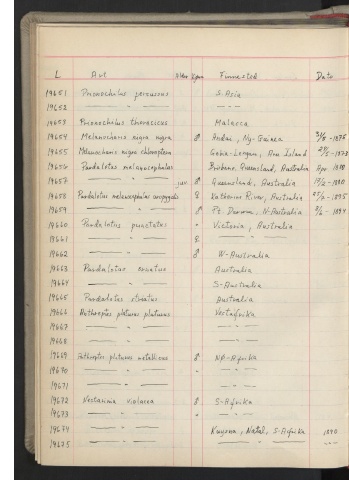 L Art Alder Kjønn Finnested Dato
19651 Prionochilus percussus S-Asia
19652 — " — — " —
19653 Prionochilus thoracicus Malacca
19654 Melanocharis nigra nigra ♂ Andai, Ny-Guinea 1875
19655 Melanocharis nigra chloroptera Aru Island 1873
19656 Pardalotus melanocephalus Brisbane, Queensland, Australia Apr 1880
19657 — " — juv. ♂ Queensland, Australia 1880
19658 Pardalotus melanocephalus uropygialis Katherine River, Australia 1895
19659 — " — ♂ Pt. Darwin, N-Australia 1894
19660 Pardalotus punctatus " Victoria, Australia
19661 — " — — " —
19662 — " — ♂ W-Australia
19663 Pardalotus ornatus Australia
19664 — " — S-Australia
19665 Pardalotus striatus Australia
19666 Anthreptes platurus platurus Vestafrika
19667 — " — — " —
19668 — " — — " —
19669 Anthreptes platurus metallicus ♂ NØ-Afrika
19670 — " — " — " —
19671 — " — — " —
19672 Nectarinia violacea ♂ S-Afrika
19673 — " — " — " —
19674 — " — Knysna, Natal, S-Afrika 1870
19675 — " — — " —